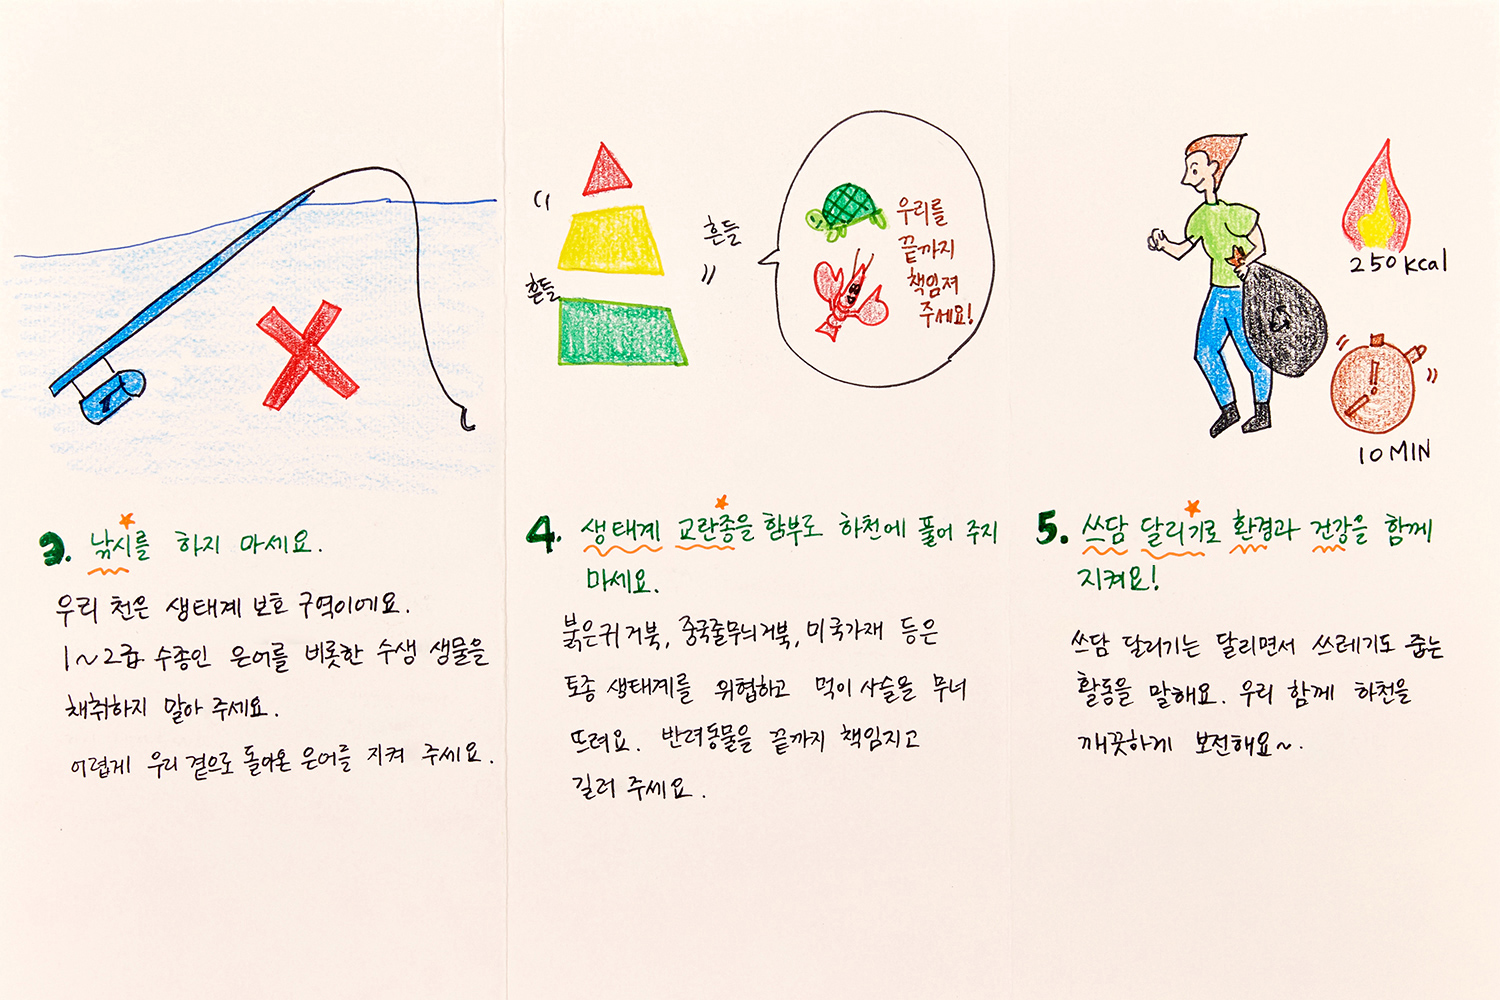 3. 낚시를 하지 마세요.
우리 천은 생태계 보호 구역이에요.
1~2급 수종인 은어를 비롯한 수생 생물을
채취하지 말아 주세요.
어렵게 우리 곁으로 돌아온 은어를 지켜 주세요.
흔들
흔들
우리를
끝까지
책임져
주세요!
4. 생태계 교란종을 함부로 하천에 풀어 주지
마세요.
붉은귀거북, 중국줄무늬거북, 미국가재 등은
토종 생태계를 위협하고 먹이사슬을 무너
뜨려요. 반려동물을 끝까지 책임지고
길러 주세요.
250 kcal
10 MIN
5. 쓰담 달리기로 환경과 건강을 함께
지켜요!
쓰담 달리기는 달리면서 쓰레기도 줍는
활동을 말해요. 우리 함께 하천을
깨끗하게 보전해요~.